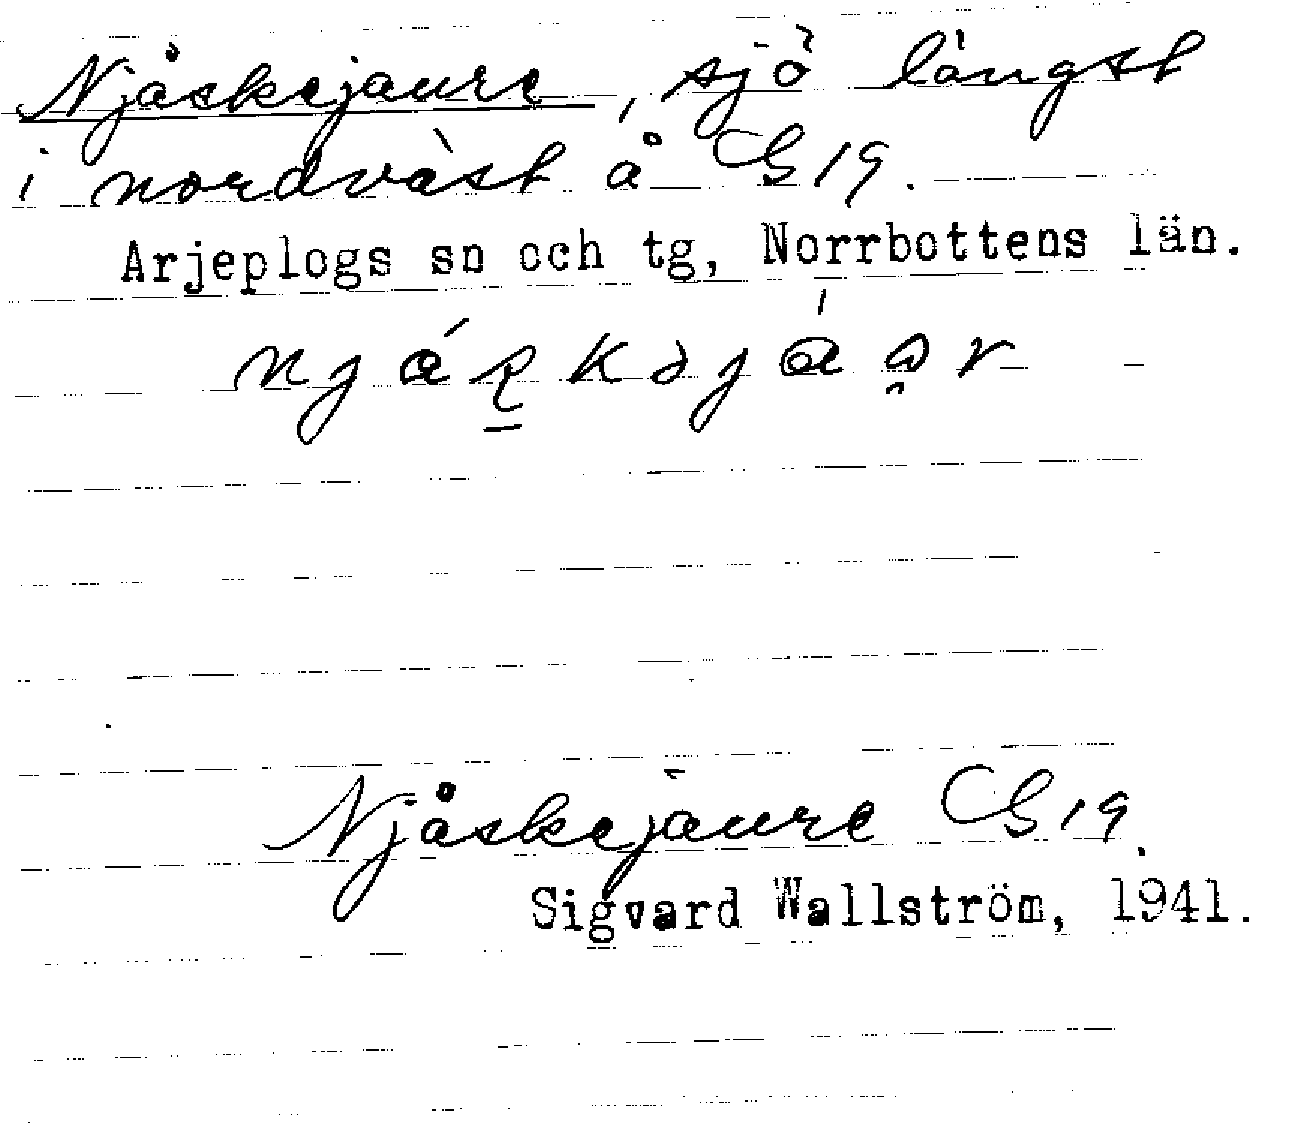 Njåskejaure, sjö längst
i nordväst å GS 19.
Arjeplogs sn och tg, Norrbottens län.
Njåskejaure GS 19.
Sigvard Wallström, 1941.